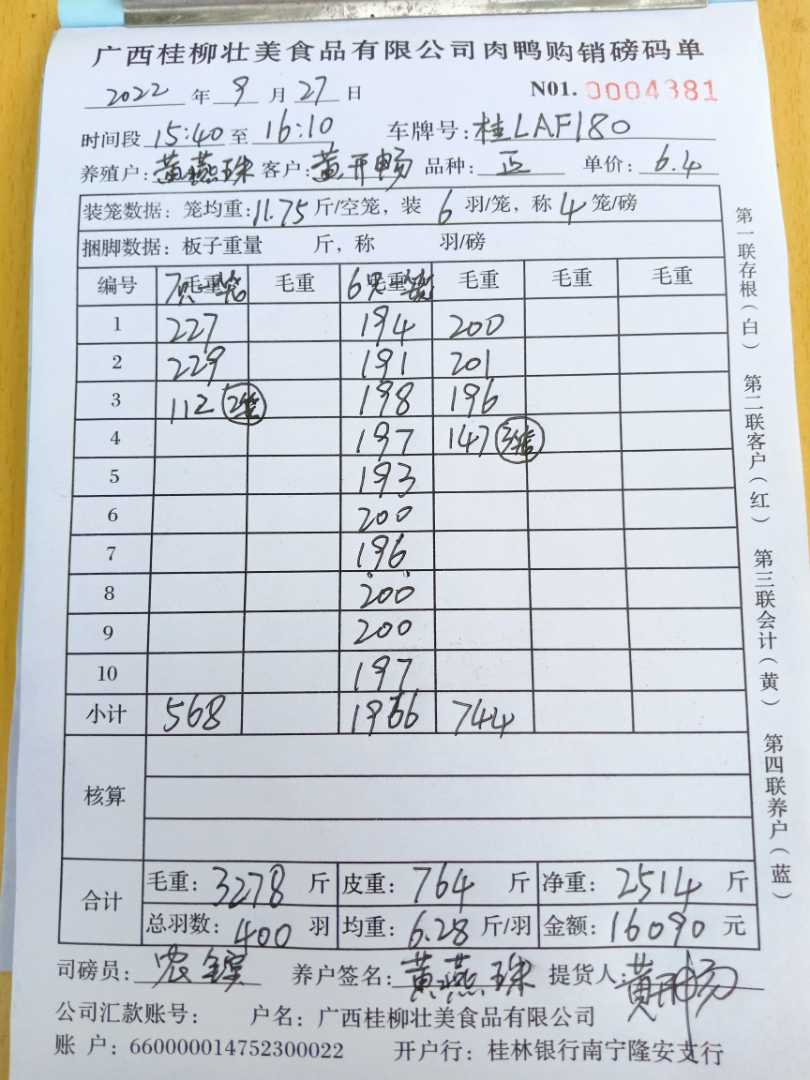 广西桂柳壮美食品有限公司肉鸭购销磅码单
2022 年 9 月 27 日 N01. 0004381
时间段 15:40 至 16:10 车牌号: 桂LAF180
养殖户: 黄燕珠 客户: 黄开畅 品种: 正 单价: 6.4
装笼数据: 笼均重: 11.75 斤/空笼, 装 6 羽/笼, 称 4 笼/磅
捆脚数据: 板子重量 斤, 称 羽/磅
编号 7只一笼 毛重 毛重 6只一笼 毛重 毛重 毛重 毛重
1 227 194 200
2 229 191 201
3 112 2笼 198 196
4 197 147 3笼
5 193
6 200
7 196
8 200
9 200
10 197
小计 568 1966 744
核算
合计 毛重: 3278 斤 皮重: 764 斤 净重: 2514 斤
总羽数: 400 羽 均重: 6.28 斤/羽 金额: 16090 元
司磅员: 农 养户签名: 黄燕珠 提货人: 黄开畅
公司汇款账号: 户名: 广西桂柳壮美食品有限公司
账 户: 660000014752300022 开户行: 桂林银行南宁隆安支行
第一联存根(白) 第二联客户(红) 第三联会计(黄) 第四联养户(蓝)